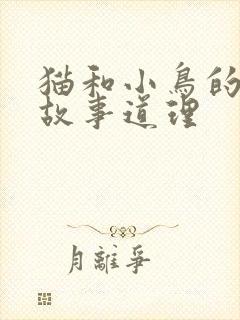 猫和小鸟的
故事道理
月離爭